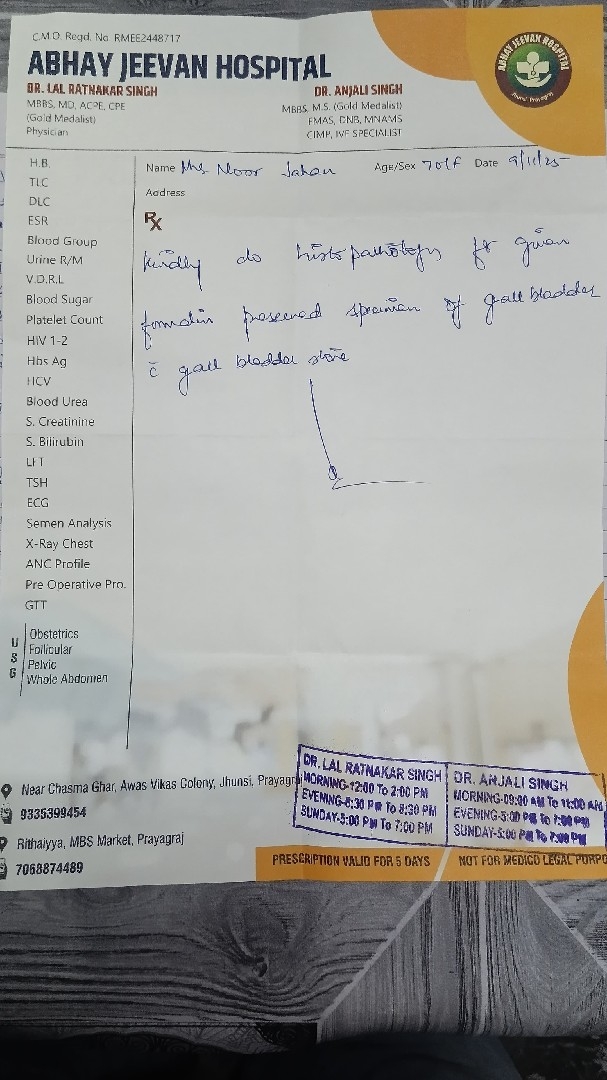 C.M.O. Regd. No. RMEE2448717
ABHAY JEEVAN HOSPITAL
DR. LAL RATNAKAR SINGH
MBBS, MD, ACPE, CPE
(Gold Medalist)
Physician
DR. ANJALI SINGH
MBBS, M.S. (Gold Medalist)
FMAS, DNB, MNAMS
CIMP, IVF SPECIALIST
ABHAY JEEVAN HOSPITAL
Jhunsi, Prayagraj
Name Mrs Noor Jahan Age/Sex 70/F Date 9/11/25
Address
Rx
kindly do histopathology for given
formalin preserved specimen of gall bladder
c̄ gall bladder stone
H.B.
TLC
DLC
ESR
Blood Group
Urine R/M
V.D.R.L
Blood Sugar
Platelet Count
HIV 1-2
Hbs Ag
HCV
Blood Urea
S. Creatinine
S. Bilirubin
LFT
TSH
ECG
Semen Analysis
X-Ray Chest
ANC Profile
Pre Operative Pro.
GTT
USG
Obstetrics
Follicular
Pelvic
Whole Abdomen
Near Chasma Ghar, Awas Vikas Colony, Jhunsi, Prayagraj
9335399454
Rithaiyya, MBS Market, Prayagraj
7068874489
DR. LAL RATNAKAR SINGH
MORNING-12:00 To 2:00 PM
EVENING-6:30 PM To 8:30 PM
SUNDAY-5:00 PM To 7:00 PM
DR. ANJALI SINGH
MORNING-09:00 AM To 11:00 AM
EVENING-5:00 PM To 7:00 PM
SUNDAY-5:00 PM To 7:00 PM
PRESCRIPTION VALID FOR 5 DAYS
NOT FOR MEDICO LEGAL PURPO